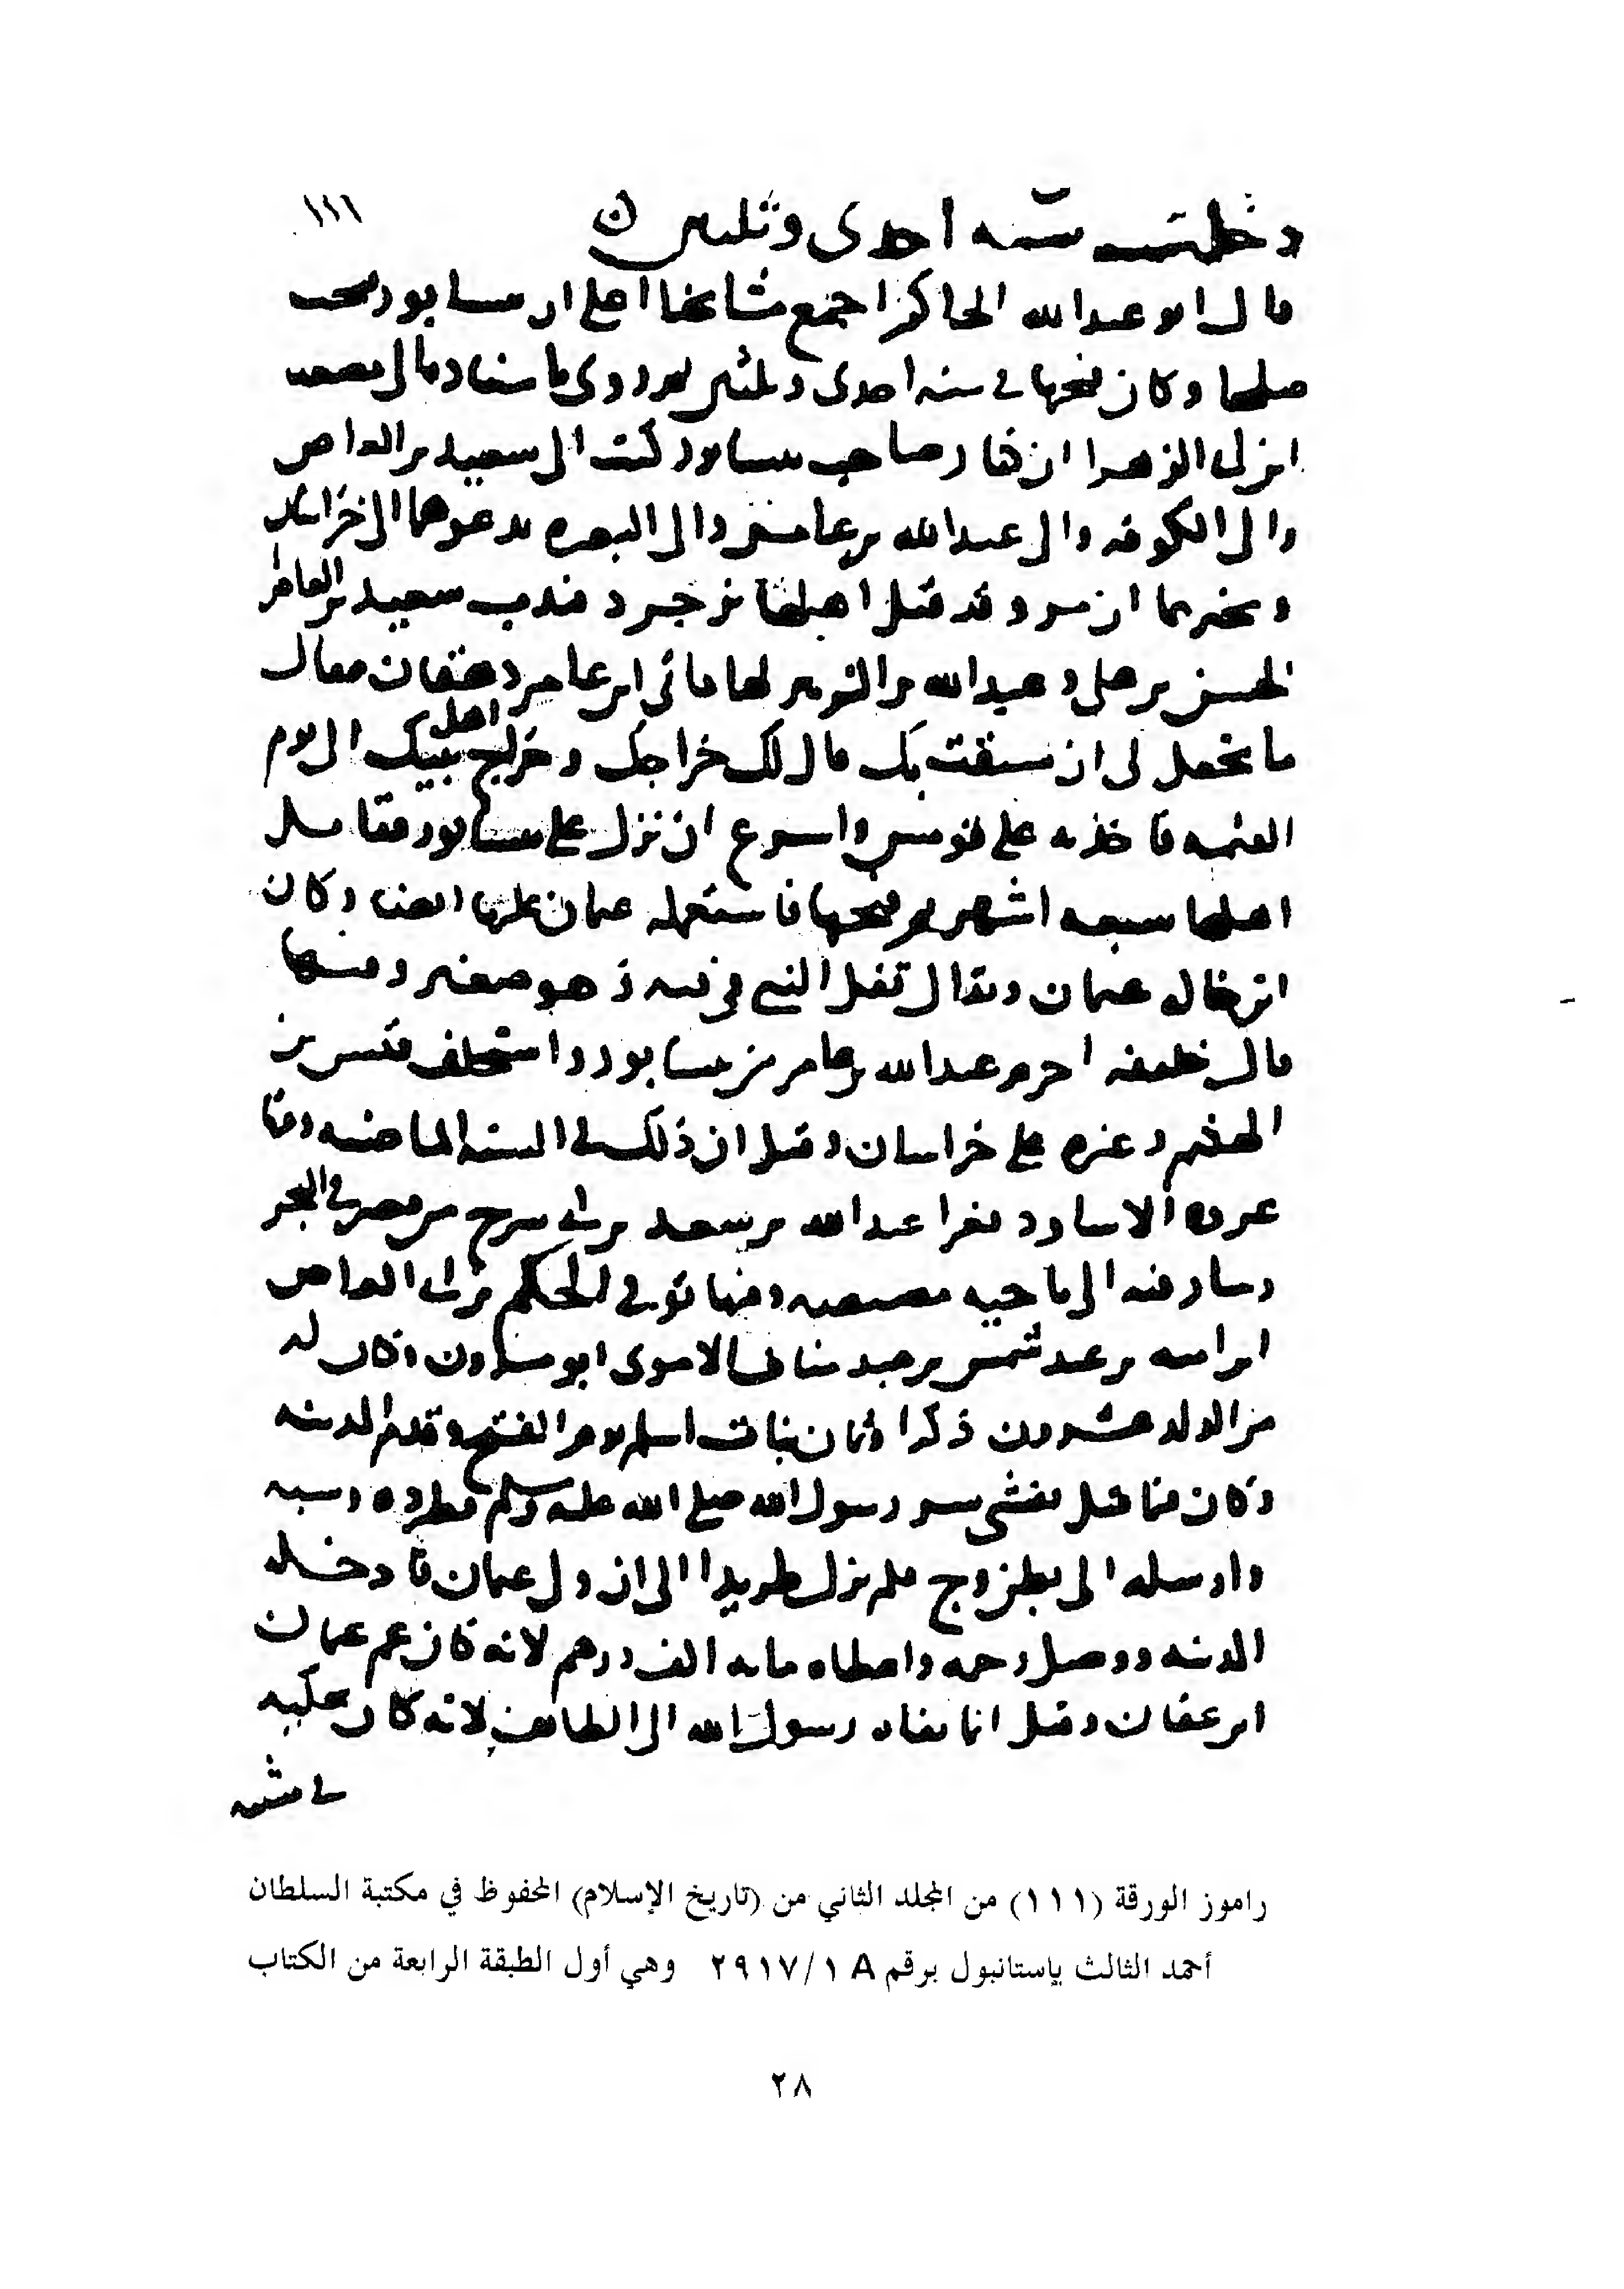 دخلت سنة احدى وثلثين
١١١
قال ابو عبد الله الحاكم اجمع مشايخنا على ان نيسابور فتحت
صلحا وكان فتحها في سنه احدى وثلثين ثم روى باسناده الى مصعب
ابن ابي الزهرا ان كنار صاحب نيسابور كتب الى سعيد بن العاص
والى الكوفه والى عبد الله بن عامر والى البصره يدعوهما الى خراسان
ويخبرهما ان مرو قد قتل اهلها يزدجرد فندب سعيد بن العاص
الحسن بن علي وعبد الله بن الزبير لها فاتى ابن عامر دهقان فقال
ما تجعل لي ان سبقت بك قال لك خراجك وخراج اهل بيتك الى يوم
القيمه فاخذ به على قومس واسرع ان نزل على نيسابور فقاتل
اهلها سبعه اشهر ثم فتحها فاستعمله عثمان عليها ايضا وكان
ابن خال عثمان ويقال تفل النبي في فيه وهو صغير وفيها
قال خليفه احرم عبد الله بن عامر من نيسابور واستخلف قيس بن
الهيثم وغيره على خراسان وقيل ان ذلك في السنه الماضيه وفيها
غزوه الاساود فغزا عبد الله بن سعد بن ابي سرح من مصر في البحر
وسار فيه الى ناحيه مصيصه وفيها توفي الحكم بن ابي العاص
ابن اميه بن عبد شمس بن عبد مناف الاموى ابو مروان وكان له
من الولد عشرون ذكرا وثمان بنات اسلم يوم الفتح وقدم المدينه
وكان فيما قيل يفشي سر رسول الله صلى الله عليه وسلم فطرده وسبه
وارسله الى بطن وج فلم يزل طريدا الى ان ولي عثمان فادخله
المدينه ووصل رحمه واعطاه مايه الف درهم لانه كان عم عثمان
ابن عفان وقيل انما نفاه رسول الله الى الطايف لانه كان يحكيه
في مشيه
راموز الورقة (١١١) من المجلد الثاني من (تاريخ الإسلام) المحفوظ في مكتبة السلطان
أحمد الثالث بإستانبول برقم A ٢٩١٧/١ وهي أول الطبقة الرابعة من الكتاب
٢٨